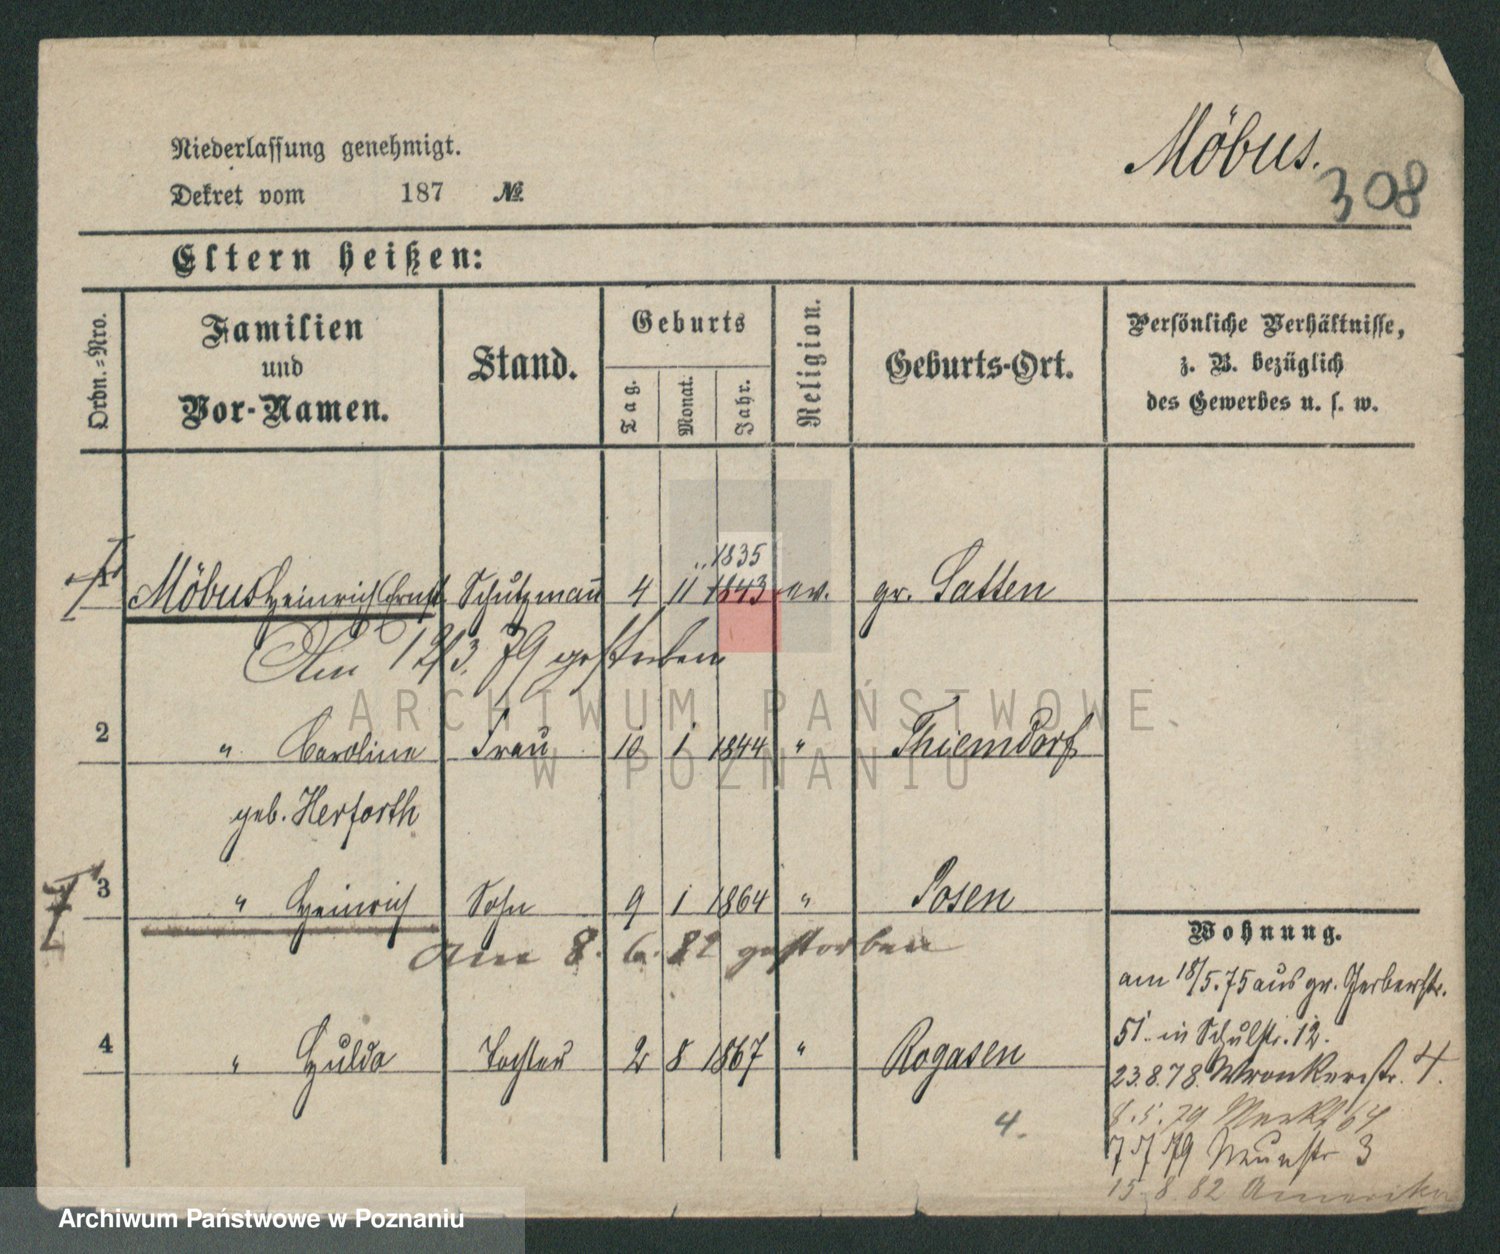 Möbus.
308
Niederlassung genehmigt.
Dekret vom 187 №
Eltern heißen:
Ordn.-Nro.
Familien und Vor-Namen.
Stand.
Geburts
Tag.
Monat.
Jahr.
Religion.
Geburts-Ort.
Persönliche Verhältnisse,
z. B. bezüglich
des Gewerbes u. s. w.
1835
1 Möbus Heinrich Ernst Schutzmann 4 11 1843 ev. gr. Satten
Am 12/3. 79 gestorben
2 " Caroline Frau 10 1 1844 " Thiemdorf
geb. Herforth
3 " Heinrich Sohn 9 1 1864 " Posen
Am 8. 6. 82 gestorben
4 " Hulda Tochter 2 8 1867 " Rogasen
4.
Wohnung.
am 18/5.75 aus gr. Gerberstr.
51 in Schulstr. 12.
23.8.78. Wronkerstr. 4.
8.5.79 Markt 64
7 79 Neuestr 3
15 8 82 Amerika
ARCHIWUM PAŃSTWOWE
W POZNANIU
Archiwum Państwowe w Poznaniu